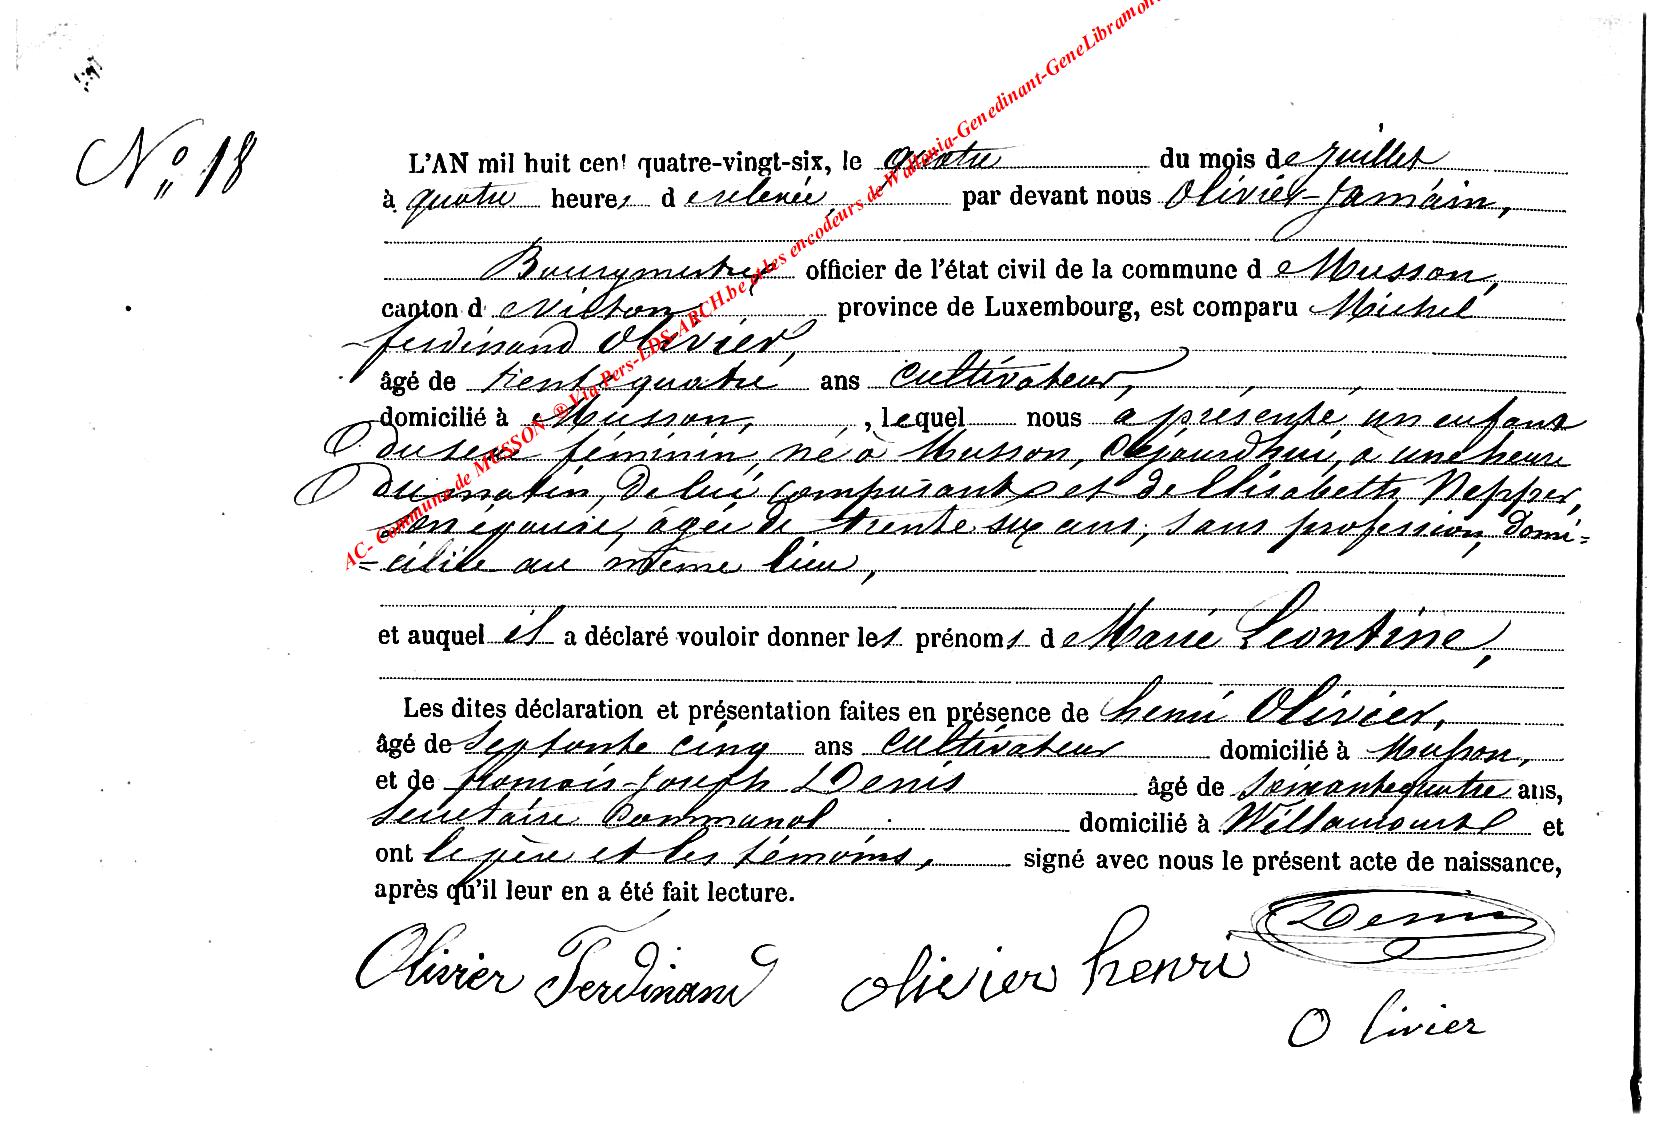 N° 18
L'AN mil huit cent quatre-vingt-six, le quatre du mois de Juillet
à quatre heures de relevée, par devant nous Olivier-Jamain,
Bourgmestre, officier de l'état civil de la commune de Musson,
canton de Virton, province de Luxembourg, est comparu Michel
ferdinand Olivier,
âgé de trente quatre ans cultivateur,
domicilié à Musson, , lequel nous a présenté un enfant
du sexe féminin, né à Musson, cejourd'hui, à une heure
du matin, de lui comparant et de Elisabeth Nepper,
son épouse, âgée de trente six ans, sans profession, domi=
=ciliée au même lieu,
et auquel il a déclaré vouloir donner les prénoms de Marie Léontine,
Les dites déclaration et présentation faites en présence de henri Olivier,
âgé de septante cinq ans cultivateur domicilié à Musson,
et de Joseph Denis âgé de soixante quatre ans,
Secrétaire Communal domicilié à Willancourt et
ont le père et les témoins, signé avec nous le présent acte de naissance,
après qu'il leur en a été fait lecture.
Denis
Olivier Ferdinand Olivier henri
Olivier
AC- Commune de MUSSON ® Via Pers-LDS-ARCH.be et les encodeurs de Wallonia-Genedinant-GeneLibramon